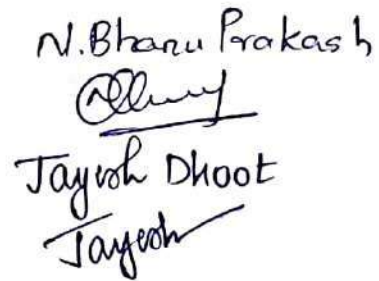 N. Bhanu Prakash
Jayesh Dhoot
Jayesh